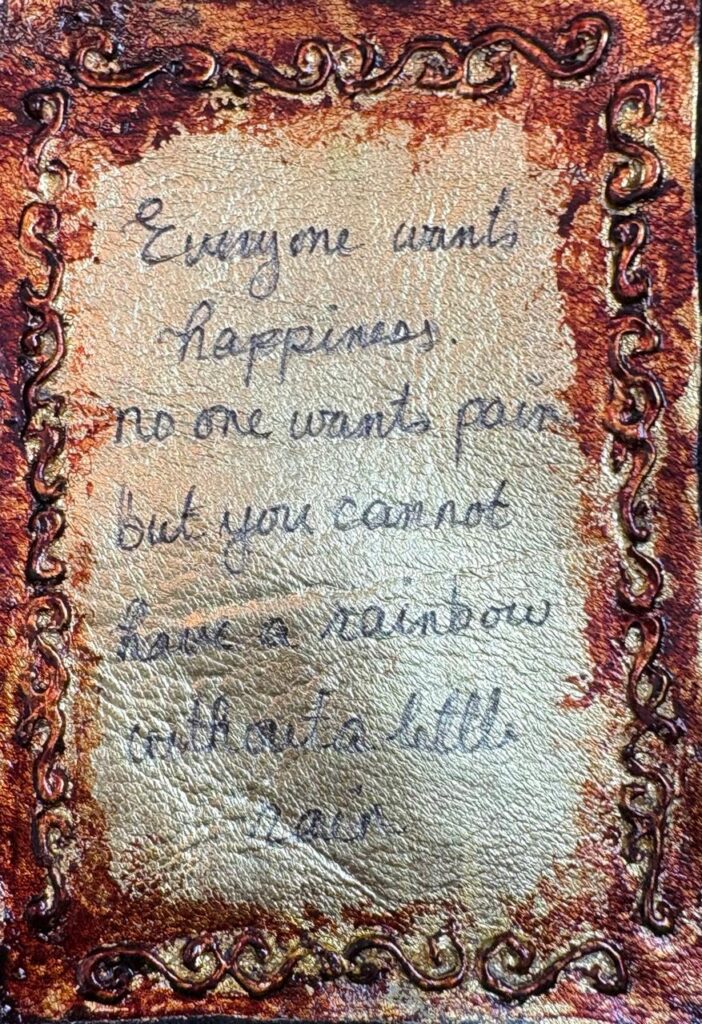 Everyone wants
happiness.
no one wants pain
but you cannot
have a rainbow
without a little
rain